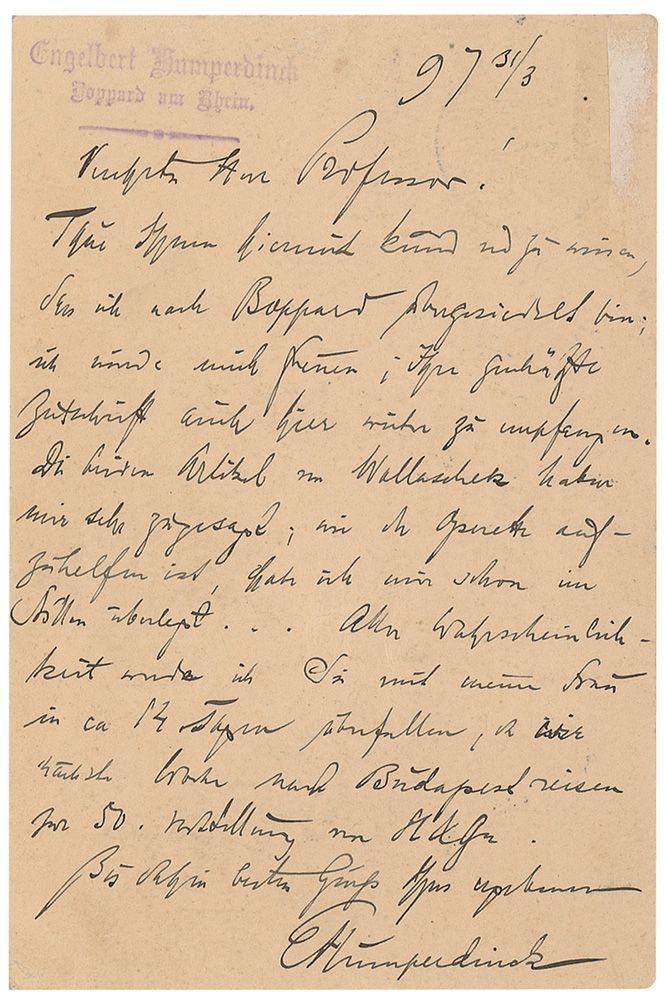 Engelbert Humperdinck
Boppard am Rhein.
97 31/3
Verehrter Herr Professor!
Thue Ihnen hiermit kund und zu wissen,
dass ich nach Boppard übergesiedelt bin;
ich würde mich freuen, Ihre geschätzte
Zutschrift auch hier weiter zu empfangen.
Die beiden Artikel von Wallaschek haben
mir sehr zugesagt; wie der Operette auf-
zuhelfen ist, habe ich mir schon im
Stillen überlegt . . . Aller Wahrscheinlich-
keit werde ich Sie mit meiner Frau
in ca 14 Tagen überfallen, da wir
nächste Woche nach Budapest reisen
zur 50. Vorstellung von H & Gr.
Bis dahin besten Gruss Ihres ergebenen
EHumperdinck